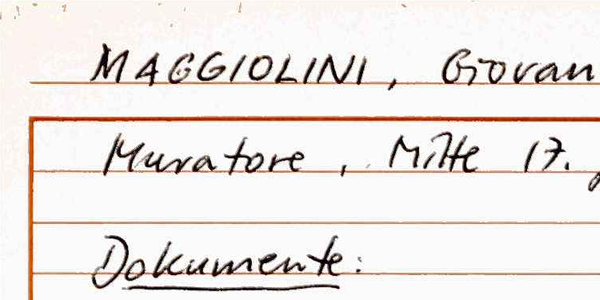 MAGGIOLINI, Giovan
Muratore, Mitte 17.
Dokumente: